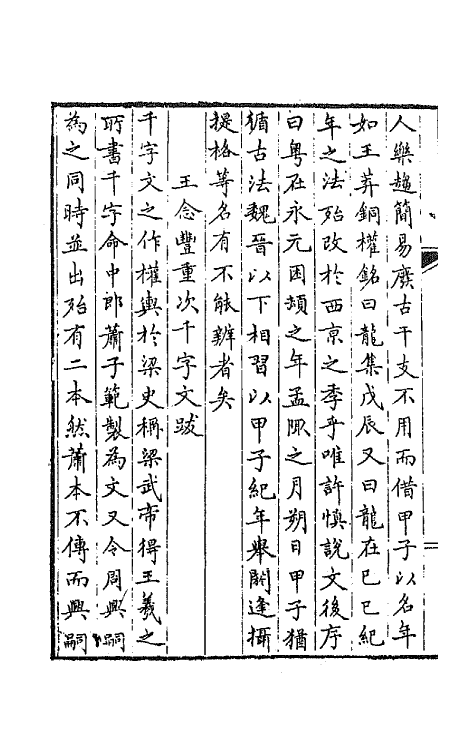 人樂趨簡易廢古干支不用而借甲子以名年
如王莽銅權銘曰龍集戊辰又曰龍在己巳紀
年之法殆改於西京之季乎唯許慎說文後序
曰粵在永元困頓之年孟陬之月朔日甲子猶
循古法魏晉以下相習以甲子紀年舉閼逢攝
提格等名有不能辨者矣
王念豐重次千字文跋
千字文之作權輿於梁史稱梁武帝得王羲之
所書千字命中郎蕭子範製為文又令周興嗣
為之同時並出殆有二本然蕭本不傳而興嗣